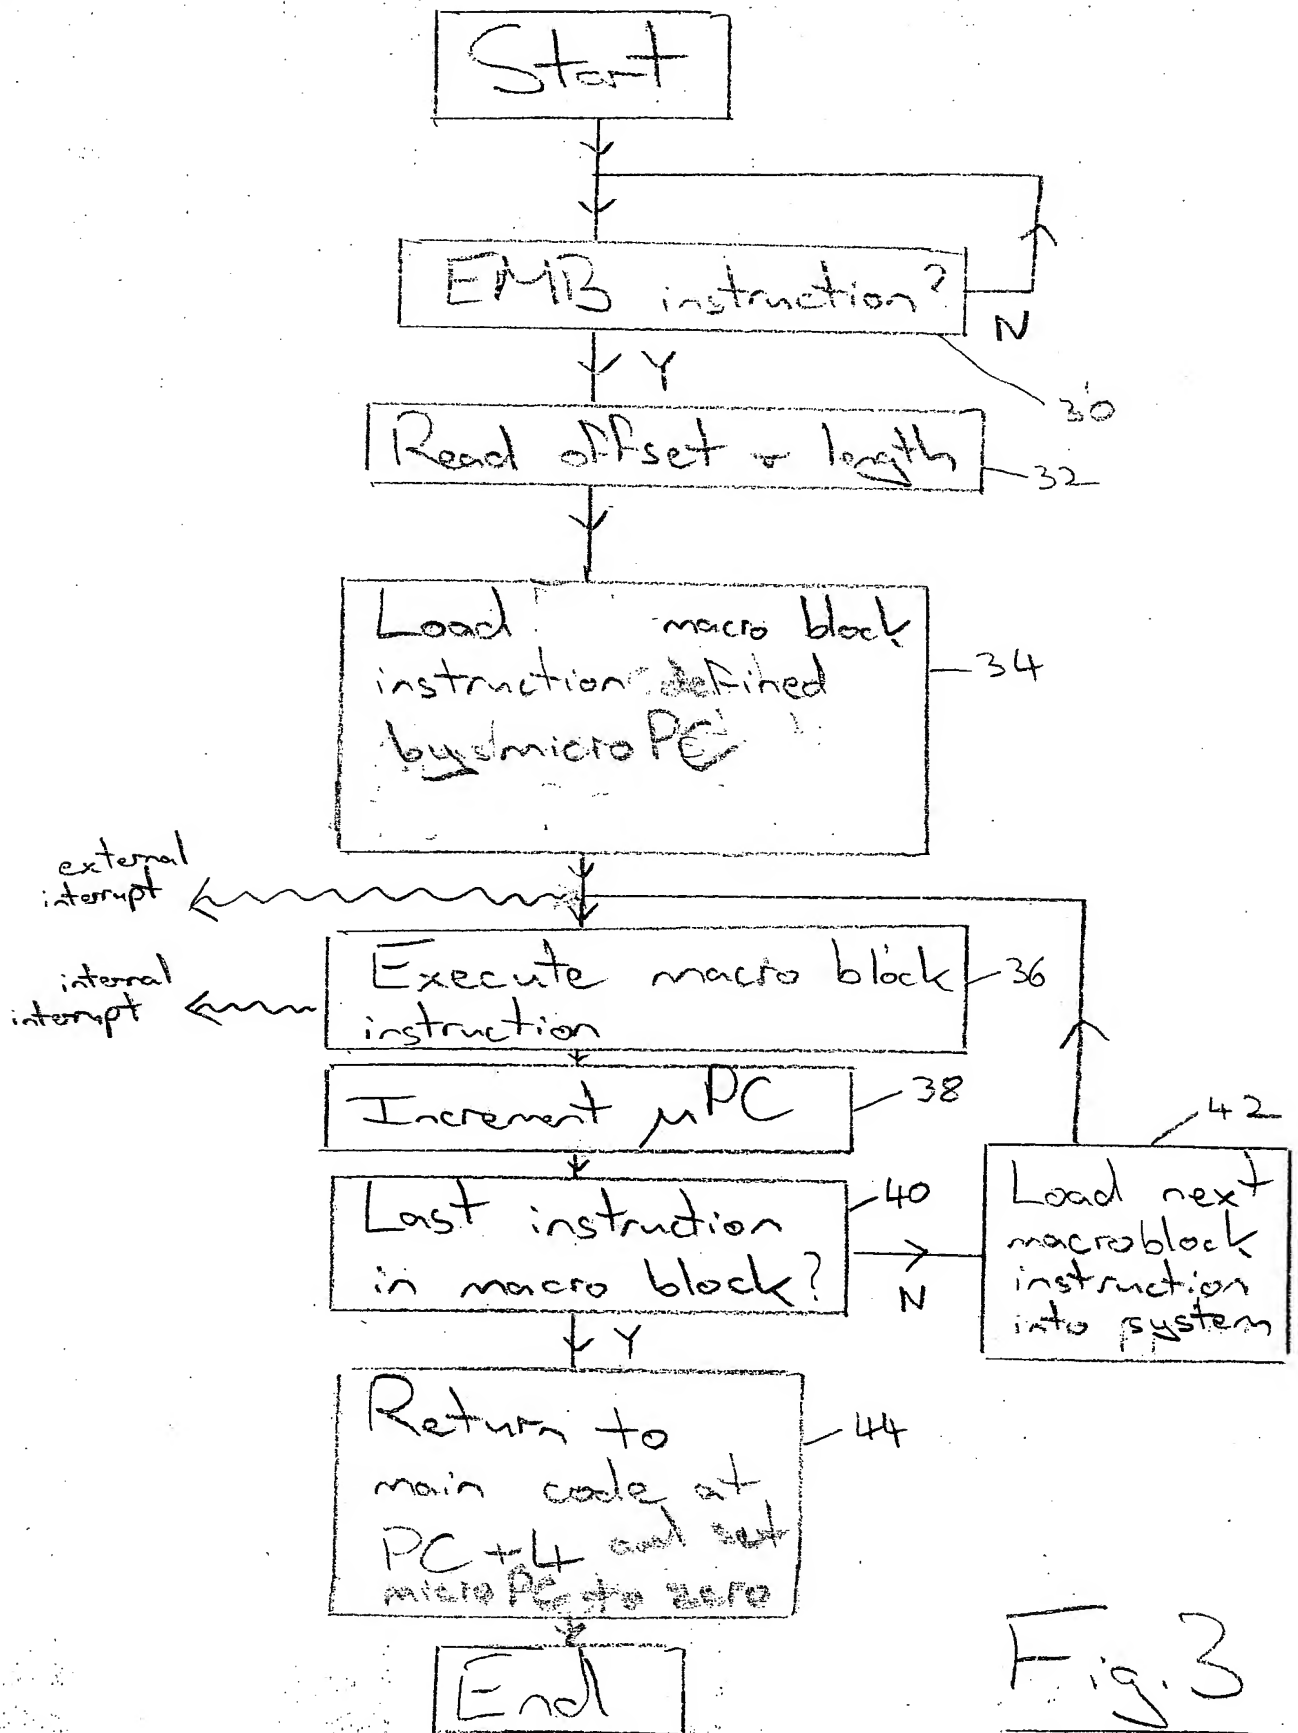 Start
EMB instruction?
N
Y
30
Read offset & length
32
Load macro block
instruction defined
by micro PC
34
external
interrupt
internal
interrupt
Execute macro block
instruction
36
Increment μPC
38
Last instruction
in macro block?
40
N
42
Load next
macroblock
instruction
into system
Y
Return to
main code at
PC+4 and set
microPC to zero
44
End
Fig. 3